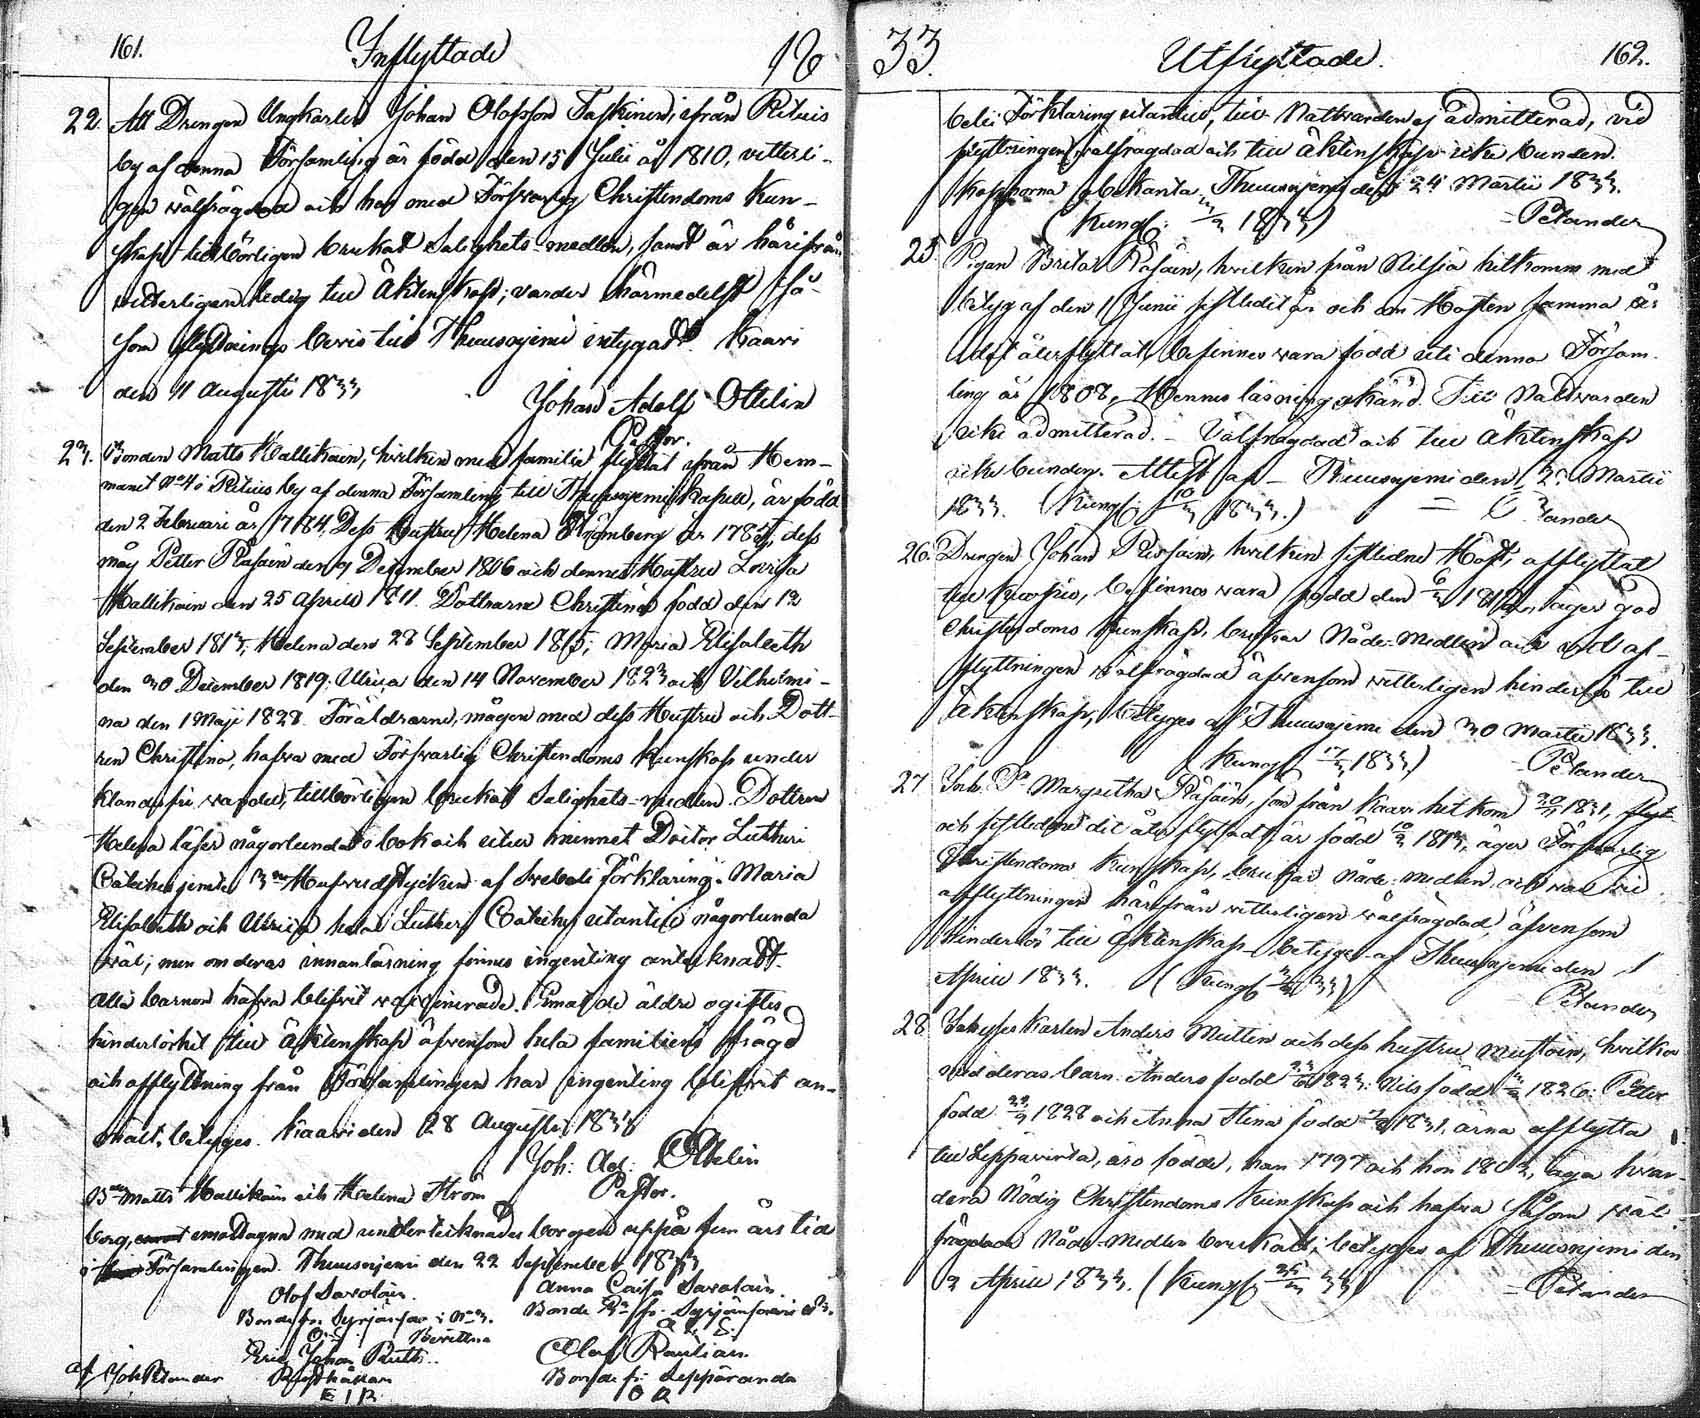 161. Inflyttade 16
22. Att Drengen Ungkarlen Johan Olofsson Taskinen, ifrån Rituis
by af denna Församling är född den 15 Julii år 1810, vitterli-
gen välfrägdad och har med Försvarlig Christendoms Kun-
skap tillbörligen brukat Salighets-medlen, samt är härifrån
vitterligen ledig till Äktenskap; varder härmedelst så-
som flyttnings bevis till Thuusnjemi intygadt. Kaavi
den 11 Augusti 1833
Johan Adolf Ottelin
Pastor.
23. Bonden Matts Hallikain, hvilken med familie flyttat ifrån Hem-
manet No 4 i Rituis by af denna Församling till Thuusnjemi Kapell, är född
den 2 Februari år 1784, Dess Hustru Helena Strömberg år 1785, dess
måg Petter Räsäin den 9 December 1806 och dennes Hustru Lovisa
Hallikain den 25 Aprill 1811. Döttrarne Christina född den 12
September 1813; Helena den 28 September 1815; Maria Elisabeth
den 30 December 1819; Ulrica den 14 November 1823 och Vilhelmi-
na den 1 Maji 1828. Föräldrarne, mågen med dess Hustru och Dott-
ren Christina, hafva med Försvarlig Christendoms Kunskap under
klanderfri vandel, tillbörligen brukat Salighets-medlen. Dottren
Helena läser någorlunda i bok och utur minnet Doctor Lutheri
Cateches jemte 3ne Hufvudstycken af Svebelii Förklaring. Maria
Elisabeth och Ulrica hela Lutheri Cateches utantill någorlunda
väl; men om deras innanläsning finnes ingenting antecknadt.
Alla barnen hafva blifvit vaccinerade. Emot de äldre ogiftes
hinderlöshet till Äktenskap äfvensom hela familiens frägd
och afflyttning från Församlingen har ingenting blifvit an-
mält, betyges. Kaavi den 28 Augusti 1833
Joh: Ad: Ottelin
Pastor.
Matts Hallikain och Helena Ström
berg, emottagna med undertecknades borgen uppå fem års tid
i Församlingen. Thuusnjemi den 22 September 1833
Olof Savolain. Anna Caisa Savolain.
Olof Räsäin
Erik Johan
Bonde fr: Leppäranda
E I R O R
33. Utflyttade. 162.
belii Förklaring utantill, till Nattvarden ej admitterad, vid
flyttningen välfrägdad och till Äktenskap icke bunden.
Kopporna bekanta. Thuusnjemi den 24 Martii 1833.
1833) Petander
25. Pigan Brita Räsäin, hvilken från Nilsiä hitkomm med
betyg af den 1 Junii sistledit år och om Hösten samma år
dit återflyttat, befinnes vara född uti denna Försam-
ling år 1808, Hennes läsning okänd. Till Nattvarden
icke admitterad. Välfrägdad och till Äktenskap
icke bunden. Attest af Thuusnjemi den Martii
1833. Petander
26. Drengen Johan hvilken sistledne Höst, afflyttat
till Kuopio, befinnes vara född den äger god
Christendoms Kunskap, brukar Nåde-Medlen och vid af-
flyttningen välfrägdad äfvensom vitterligen hinderlös till
Äktenskap, betyges af Thuusnjemi den 30 Martii 1833.
1833) Petander
27. Margretha Räsäin, som från Kaavi hitkom 1831,
och sistledne dit återflyttadt är född äger Försvarlig
Christendoms Kunskap, brukar Nåde-medlen och var vid
afflyttningen härifrån vitterligen välfrägdad, äfvensom
hinderlös till Äktenskap betyges af Thuusnjemi den 1
Aprill 1833. Petander
28. Anders och dess hustru hvilka
med deras barn Anders född Nils född 1826. Petter
född 1828 och Anna Stina född 1831, ärna afflytta
till Leppävirta, äro födde, han 1797 och hon äga hvar-
dera Nödig Christendoms Kunskap och hafva såsom väl
frägdade Nåde-Medlen brukat; betyges af Thuusnjemi den
3 Aprill 1833. Petander